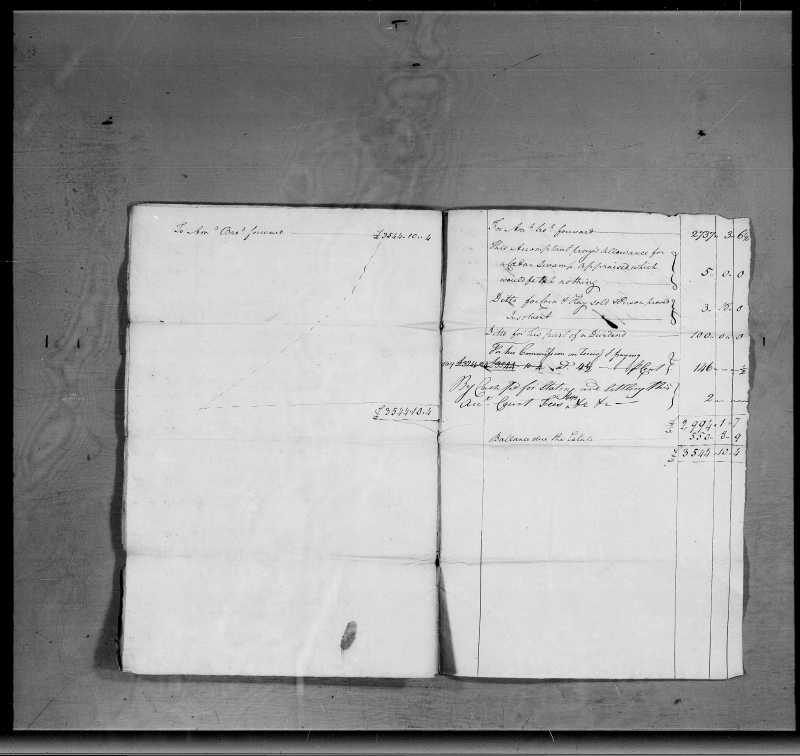 To Amt. Brot. forward £3544.10.4
£3544.10.4
For Amt. Brot. forward 2737. 3. 6½
This Accomptant prays allowance for
a Cedar Swamp appraised which
would fetch nothing 5. 0. 0
Ditto for Corn & Hay sold Person proved
Insolvent 3. 18. 0
Ditto for his part of a Dividend 100. 0. 0
For his Commission on receivg. & paying
£3544. 10. 4 @ 4½ P Cent 146. — — ½
By Cash pd. for Stating and settling this
Acct. Court Fees &c &c 2 — —
£2994. 1. 7
Ballance due the Estate 550. 8. 9
£3544. 10. 4